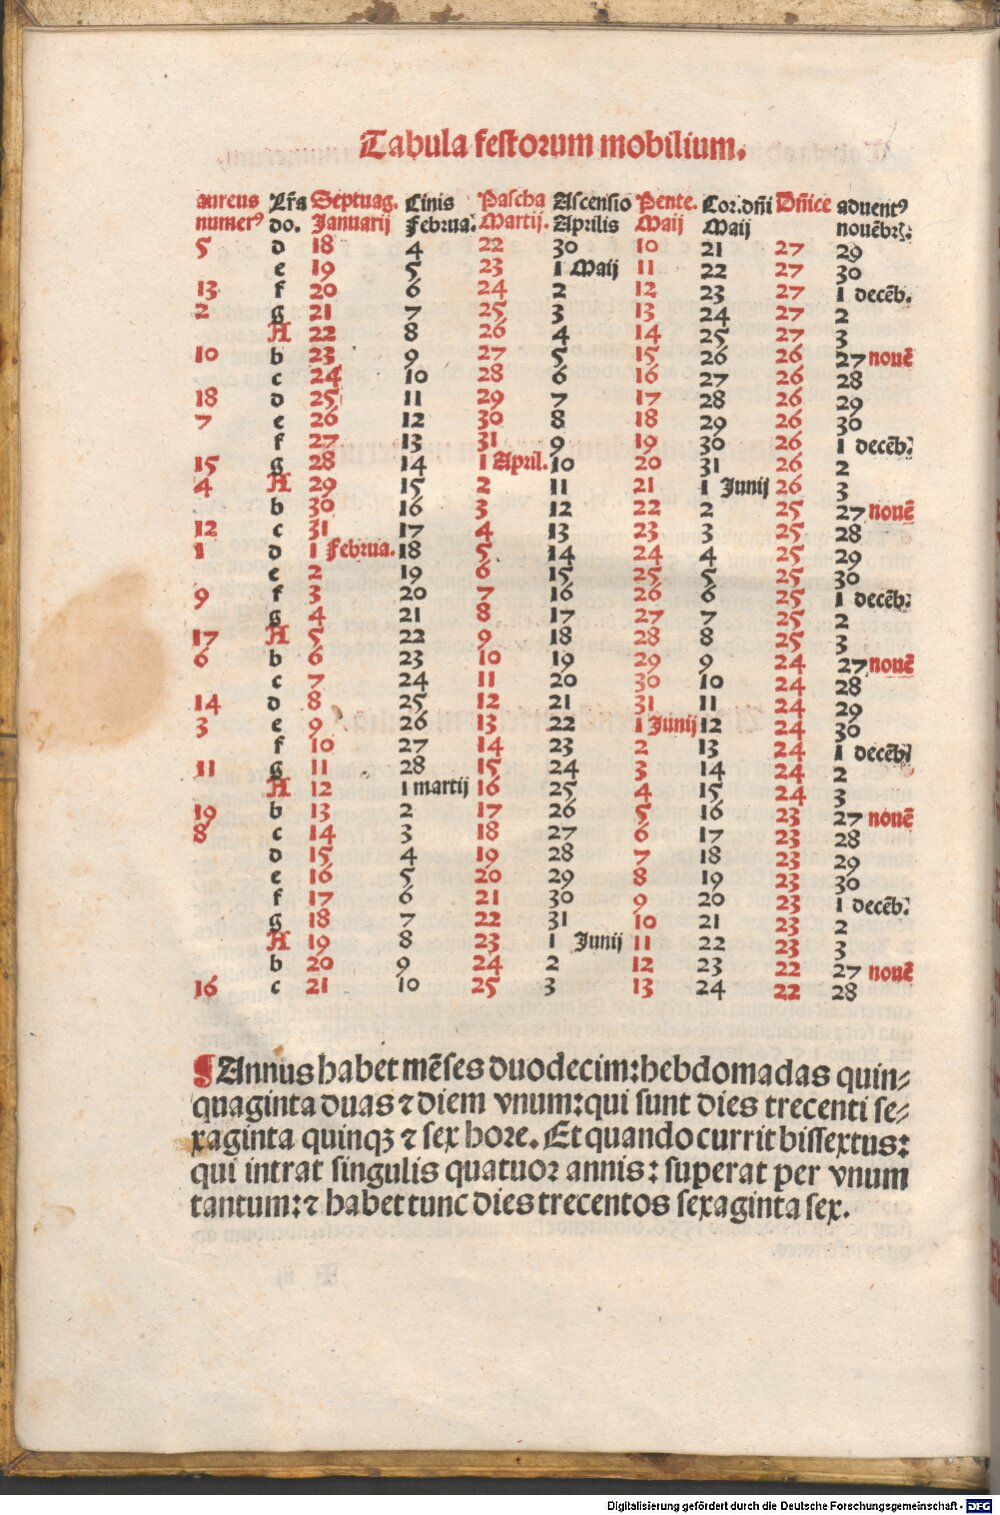 Tabula festorum mobilium.
aureus Lr̃a Septuag. Cinis Pascha Ascensio Pente. Cor.dñi Dñice aduentꝰ
numerꝰ do. Januarij Februa. Martij. Aprilis Maij Maij nouẽbr̃.
5 d 18 4 22 30 10 21 27 29
e 19 5 23 1 Maij 11 22 27 30
13 f 20 6 24 2 12 23 27 1 decẽb.
2 g 21 7 25 3 13 24 27 2
A 22 8 26 4 14 25 27 3
10 b 23 9 27 5 15 26 26 27 nouẽ
c 24 10 28 6 16 27 26 28
18 d 25 11 29 7 17 28 26 29
7 e 26 12 30 8 18 29 26 30
f 27 13 31 9 19 30 26 1 decẽb.
15 g 28 14 1 April. 10 20 31 26 2
4 A 29 15 2 11 21 1 Junij 26 3
b 30 16 3 12 22 2 25 27 nouẽ
12 c 31 17 4 13 23 3 25 28
1 d 1 Februa. 18 5 14 24 4 25 29
e 2 19 6 15 25 5 25 30
9 f 3 20 7 16 26 6 25 1 decẽb.
g 4 21 8 17 27 7 25 2
17 A 5 22 9 18 28 8 25 3
6 b 6 23 10 19 29 9 24 27 nouẽ
c 7 24 11 20 30 10 24 28
14 d 8 25 12 21 31 11 24 29
3 e 9 26 13 22 1 Junij 12 24 30
f 10 27 14 23 2 13 24 1 decẽb.
11 g 11 28 15 24 3 14 24 2
A 12 1 martij 16 25 4 15 24 3
19 b 13 2 17 26 5 16 23 27 nouẽ
8 c 14 3 18 27 6 17 23 28
d 15 4 19 28 7 18 23 29
e 16 5 20 29 8 19 23 30
f 17 6 21 30 9 20 23 1 decẽb.
g 18 7 22 31 10 21 23 2
A 19 8 23 1 Junij 11 22 23 3
b 20 9 24 2 12 23 22 27 nouẽ
16 c 21 10 25 3 13 24 22 28
¶ Annus habet mẽses duodecim: hebdomadas quin⸗
quaginta duas ⁊ diem vnum: qui sunt dies trecenti se⸗
xaginta quinqꝫ ⁊ sex hore. Et quando currit bissextus:
qui intrat singulis quatuor annis: superat per vnum
tantum: ⁊ habet tunc dies trecentos sexaginta sex.
Digitalisierung gefördert durch die Deutsche Forschungsgemeinschaft - DFG